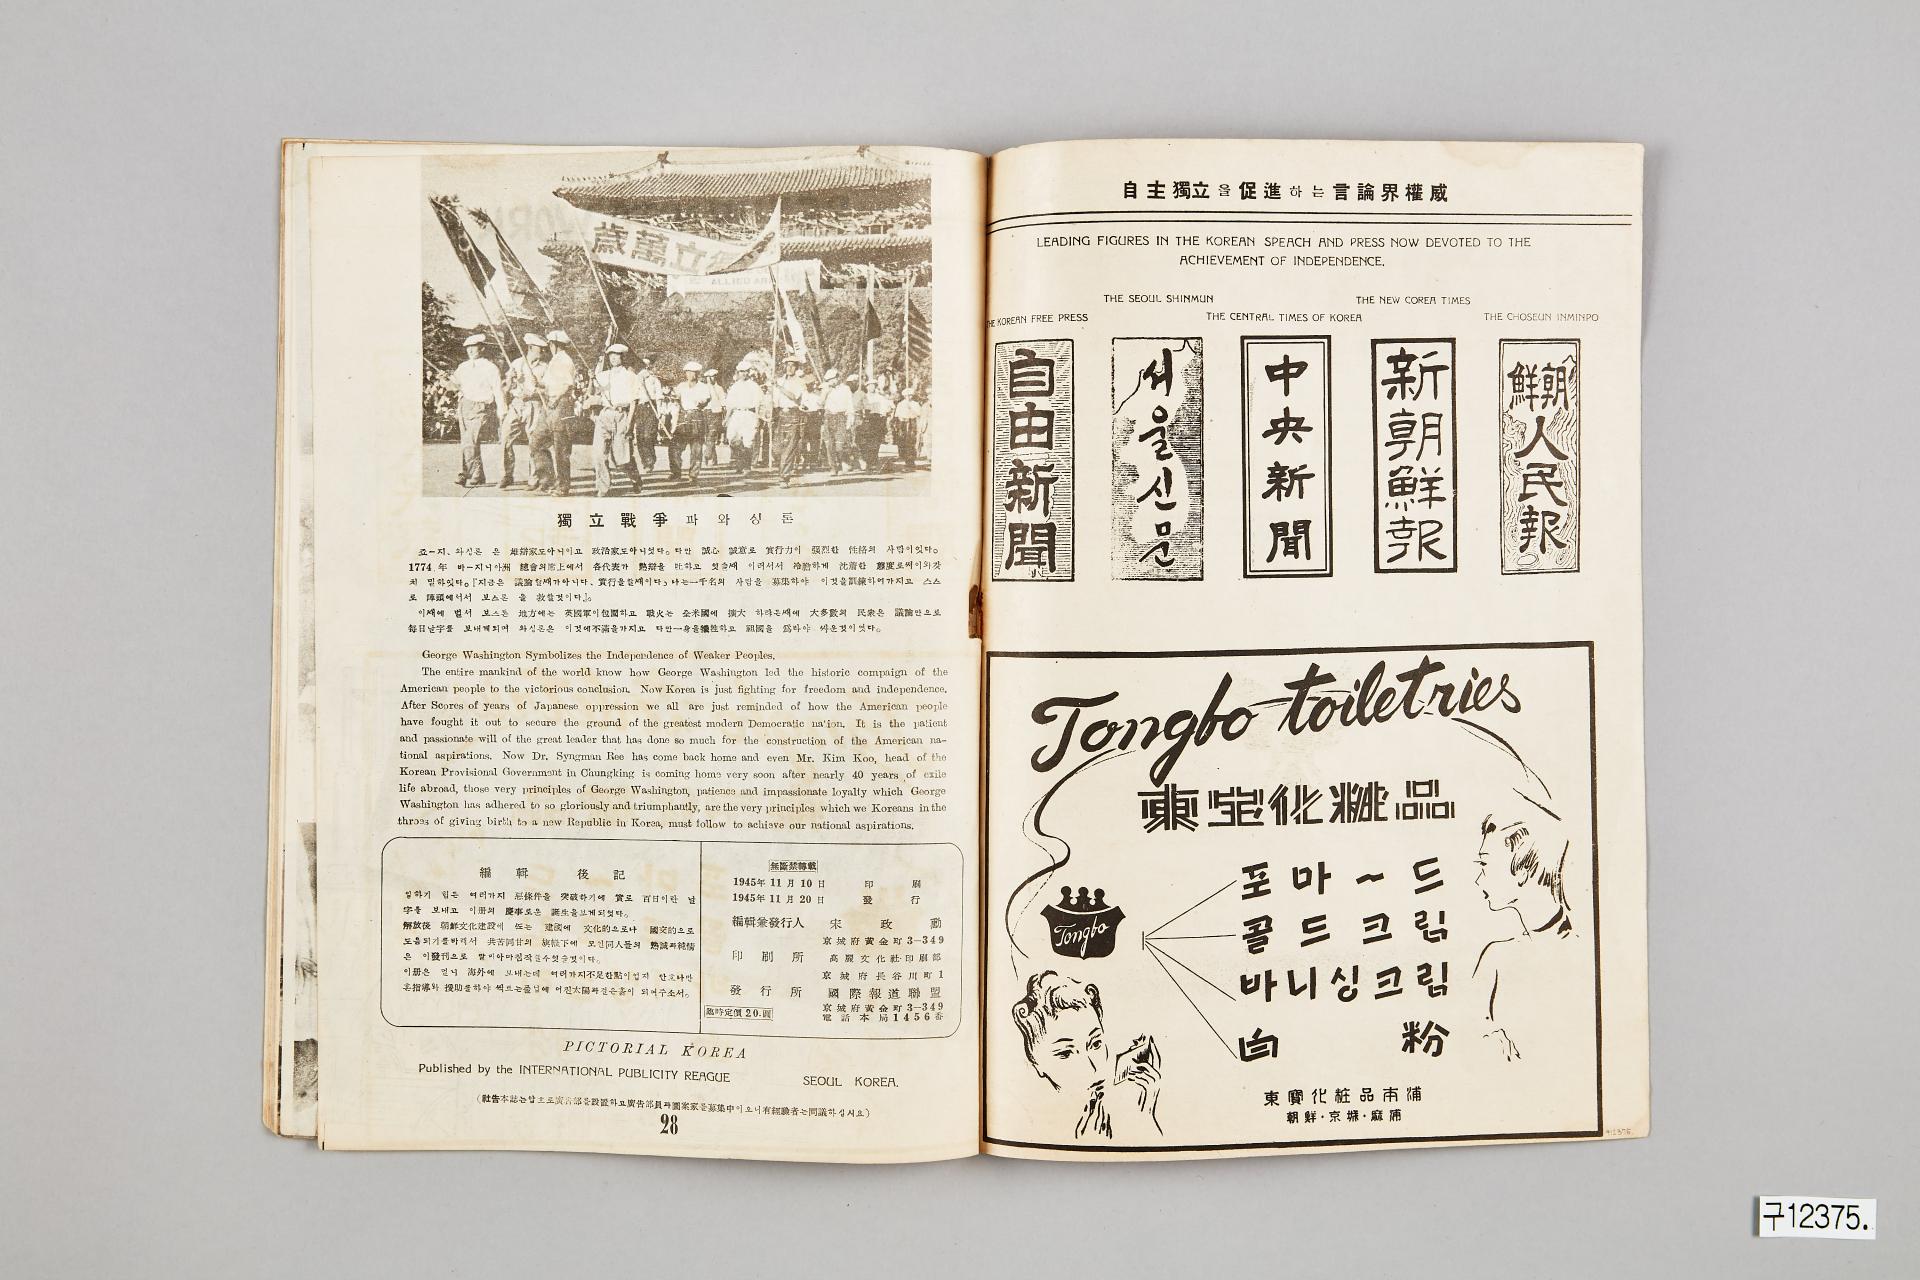 獨立戰爭과 와싱톤
죠-지、와싱톤 은 雄辯家도아니이고 政治家도아니엿다。다만 誠心 誠意로 實行力이 强烈한 性格의 사람이잇다。
1774 年 바-지니아洲 總會의席上에서 各代表가 熱辯을 吐하고 잇슬때 이러서서 冷膽하게 沈着한 態度로써이와갓
치 말하잇다。『지금은 議論할때가아니다、實行을할때이다』나는一千名의 사람을 募集하야 이것을訓練하여가지고 스스
로 陣頭에서서 보스톤 을 救할것이다』。
이때에 벌서 보스톤 地方에는 英國軍이包圍하고 戰火는 全米國에 擴大 하랴든때에 大多數의 民衆은 議論만으로
每日날字를 보내게되며 와싱톤은 이것에不滿을가지고 다만一身을犧牲하고 祖國을 爲하야 싸운것이엿다。
George Washington Symbolizes the Independence of Weaker Peoples.
The entire mankind of the world know how George Washington led the historic compaign of the
American people to the victorious conclusion. Now Korea is just fighting for freedom and independence.
After Scores of years of Japanese oppression we all are just reminded of how the American people
have fought it out to secure the ground of the greatest modern Democratic nation. It is the patient
and passionate will of the great leader that has done so much for the construction of the American na-
tional aspirations. Now Dr. Syngman Ree has come back home and even Mr. Kim Koo, head of the
Korean Provisional Government in Chungking is coming home very soon after nearly 40 years of exile
life abroad, those very principles of George Washington, patience and impassionate loyalty which George
Washington has adhered to so gloriously and triumphantly, are the very principles which we Koreans in the
throes of giving birth to a new Republic in Korea, must follow to achieve our national aspirations.
編輯後記
일하기 힘든 여러가지 惡條件을 突破하기에 實로 百日이란 날
字를 보내고 이册의 慶事로운 誕生을보게되엿다。
解放後 朝鮮文化建設에 또는 建國에 文化的으로나 國交的으로
도움되기를바라서 共苦同甘의 旗幟下에 모인同人들의 熱誠과純情
은 이發刊으로
이册은 멀니 海外에 보내는데 여러가지不足한點이업지 안흐나만
흔指導와 援助를하야
無斷禁轉載
1945年 11月 10日 印刷
1945年 11月 20日 發行
編輯兼發行人 宋政勳
京城府黃金町3-349
印刷所 高麗文化社・印刷部
京城府長谷川町1
發行所 國際報道聯盟
京城府黃金町3-349
臨時定價20.圓 電話本局1456番
PICTORIAL KOREA
Published by the INTERNATIONAL PUBLICITY REAGUE
SEOUL KOREA.
(社告本誌는 廣告部를設置하고廣告部員과圖案家를募集中이오니有經驗者는問議하십시요)
28
自主獨立을 促進하는 言論界權威
LEADING FIGURES IN THE KOREAN SPEACH AND PRESS NOW DEVOTED TO THE
ACHIEVEMENT OF INDEPENDENCE.
THE KOREAN FREE PRESS
THE SEOUL SHINMUN
THE CENTRAL TIMES OF KOREA
THE NEW COREA TIMES
THE CHOSEUN INMINPO
自由新聞
서울신문
中央新聞
新朝鮮報
朝鮮人民報
Tongbo toiletries
東宝化粧品
Tongbo
포마~드
골드크림
바니싱크림
白粉
東寶化粧品本浦
朝鮮・京城・麻浦
구12375.